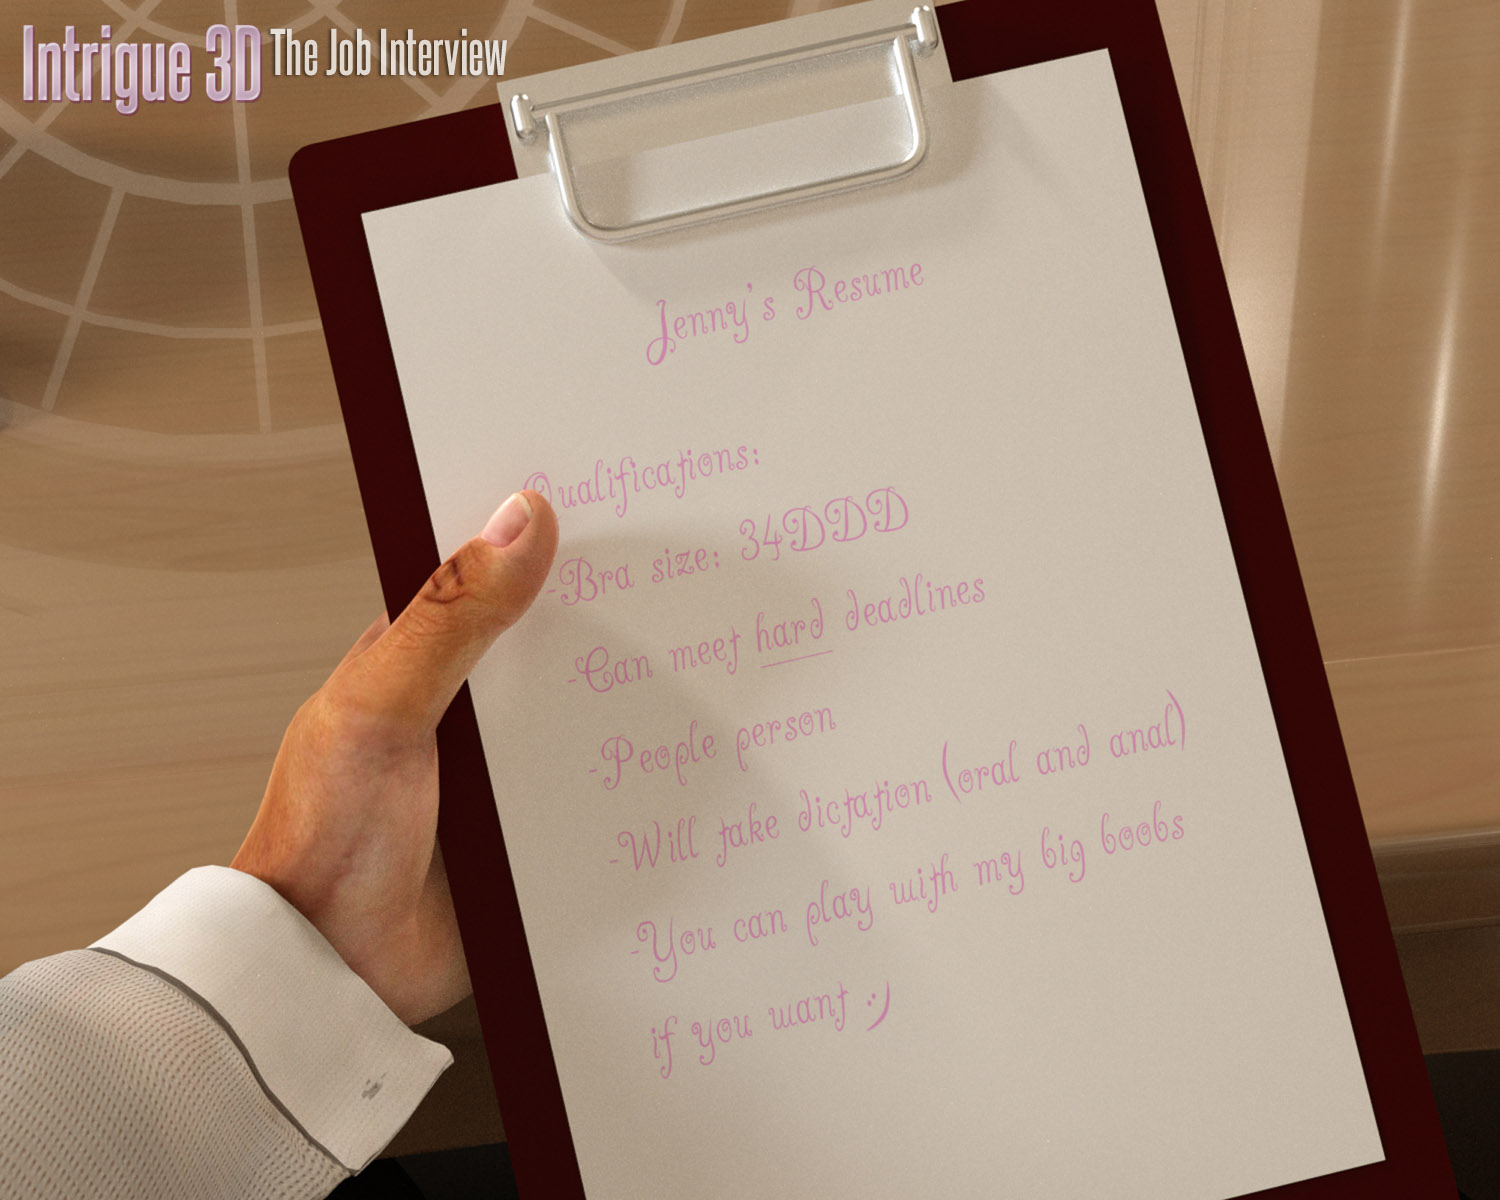 Intrigue 3D The Job Interview
Jenny's Resume
Qualifications:
-Bra size: 34DDD
-Can meet hard deadlines
-People person
-Will take dictation (oral and anal)
-You can play with my big boobs
if you want :)